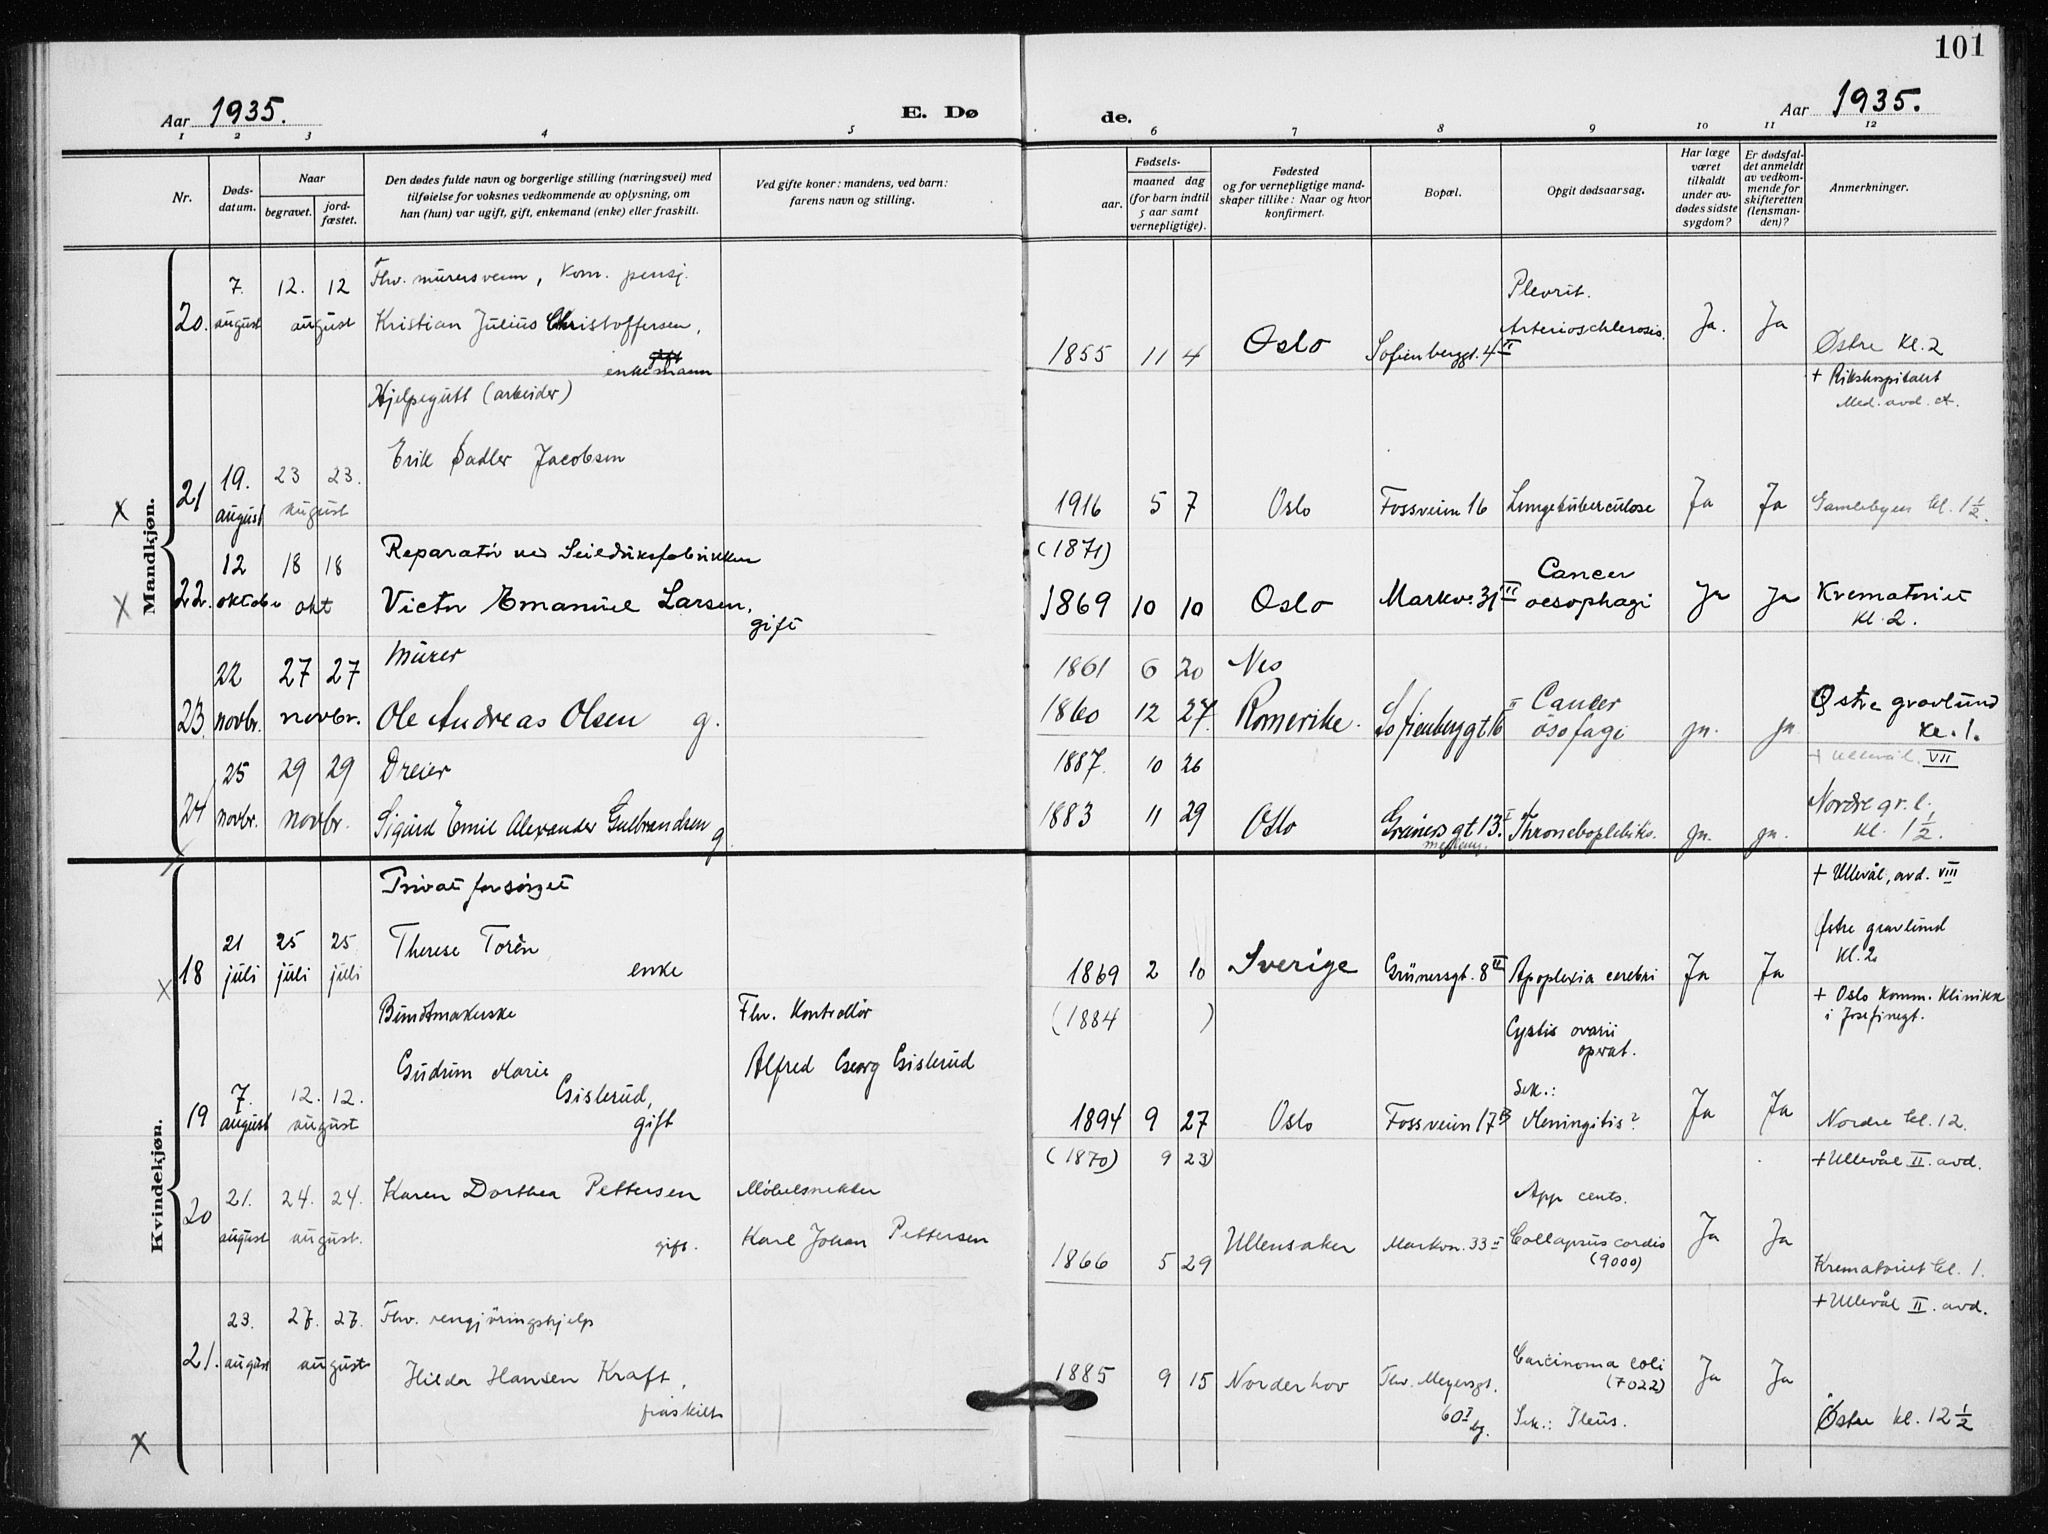 101
Aar 1935.
E. Dø
de.
Aar 1935.
1 2 3 4 5 6 7 8 9 10 11 12
Nr.
Døds-
datum.
Naar
begravet.
jord-
fæstet.
Den dødes fulde navn og borgerlige stilling (næringsvei) med
tilføielse for voksnes vedkommende av oplysning, om
han (hun) var ugift, gift, enkemand (enke) eller fraskilt.
Ved gifte koner: mandens, ved barn:
farens navn og stilling.
Fødsels-
aar.
maaned dag
(for barn indtil
5 aar samt
vernepligtige).
Fødested
og for vernepligtige mand-
skaper tillike: Naar og hvor
konfirmert.
Bopæl.
Opgit dødsaarsag.
Har læge
været
tilkaldt
under av-
dødes sidste
sygdom?
Er dødsfal-
det anmeldt
av vedkom-
mende for
skifteretten
(lensman-
den)?
Anmerkninger.
Mandkjøn.
20.
7. august
12. 12 august
Fhv. murersvenn, kom. pensj.
Kristian Julius Christoffersen,
enkemann
1855 11 4
Oslo
Sofienberggt. 4 II
Plevrit.
Arterioschlerosis.
Ja. Ja
Østre kl. 2
+ Rikshospitalet
Med. avd. A.
x
21
19. august
23 23. august
Hjelpegutt (arbeider)
Erik Sadler Jacobsen
1916 5 7
Oslo
Fossveien 16
Lungetuberculose
Ja Ja
Gamlebyen kl. 1 1/2.
x
22.
12 oktober
18 18 okt
Reparatør ved Seilduksfabrikken
Victor Emanuel Larsen,
gift
(1871)
1869 10 10
Oslo
Markv. 31 II
Cancer
oesophagi
Ja Ja
Krematoriet
kl. 2.
23.
22 novbr.
27 27 novbr.
Murer
Ole Andreas Olsen g.
1861 6 20
1860 12 27
Nes
Romerike.
Sofienberggt 16 II
Cancer
ösofagi
ja. ja
Østre gravlund
kl. 1.
+ Ullevål. VII
24
25 novbr.
29 29 novbr.
Dreier
Sigurd Emil Alexander Gulbrandsen
g.
1887. 10 26
1883 11 29
Oslo
Grüners gt 13. I
Thrombophlebitis.
ja. ja.
Nordre gr. l.
kl. 1 1/2.
Kvindekjøn.
+ Ullevål, avd. VIII
x
18
21 juli
25 juli
25 juli
Privat forsørget
Therese Torèn
enke
1869 2 10
Sverige
Grünersgt. 8 II
Apoplexia cerebri
Ja Ja
Østre gravlund
kl. 2.
+ Oslo Komm. Klinikk
i Josefinegt.
19
7. august
12. 12. august
Buntmakerske
Gudrun Marie
Gislerud,
gift
Fhv. Kontrollør
Alfred Georg Gislerud
(1884 )
1894 9 27
Oslo
Fossveien 17 B
Cystis ovarii
operat.
Sek.:
Meningitis?
Ja Ja
Nordre kl. 12.
+ Ullevål II. avd.
20
21. august
24. 24. august.
Karen Dorthea Pettersen
gift.
Møbelsnekker
Karl Johan Pettersen
(1870) 9 23)
1866 5 29
Ullensaker
Markvn. 33 I
App cents.
Collapsus cordis
(9000)
Ja Ja
Krematoriet kl. 1.
+ Ullevål II. avd.
x
21.
23. august
27. 27. august
Fhv. rengjøringshjelp
Hilda Hansen Kraft,
fraskilt
1885 9 15
Norderhov
Thv. Meyersgt.
60 I bg.
Carcinoma coli
(7022)
Sek.: Ileus.
Ja Ja
Østre kl. 12 1/2